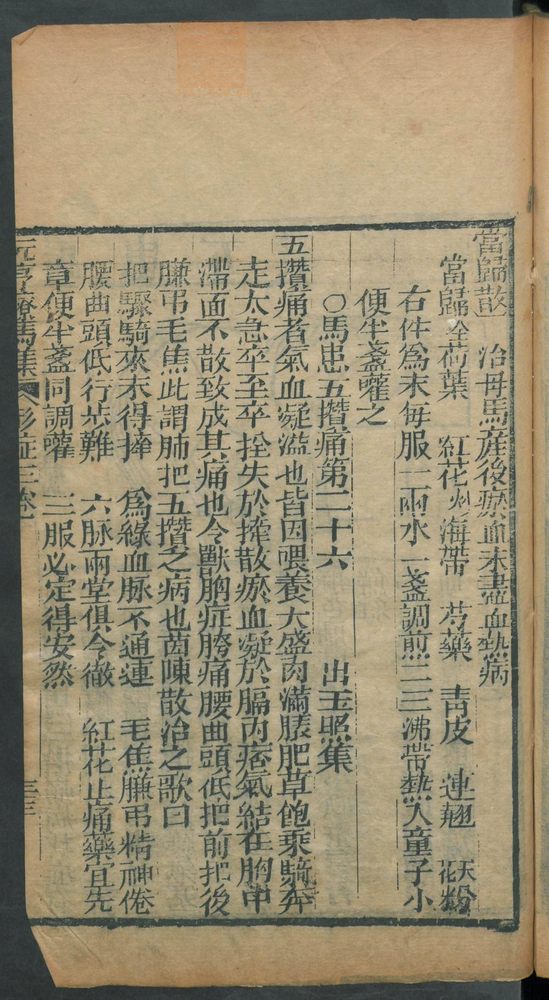 當歸散 治母馬産後瘀血未盡血熱病
當歸 荷葉 紅花 炒 海帶 芍藥 青皮 連翹 天花粉
右件為末每服二兩水一盞調煎二三沸帶熱入童子小
便半盞嚾之
〇馬患五攢痛第二十六 出玉照集
五攢痛者氣血凝滋也皆因喂養大盛肉滿膘肥草飽乘騎奔
走太急卒至卒拴失於搾散瘀血凝於膈内痞氣結在胸中
滯而不散致成其痛也令獸胸症胯痛腰曲頭低把前把後
膁吊毛焦此謂肺把五攢之病也茵陳散治之歌曰
把驟騎來未得搾 為緣血脉不通連 毛焦膁吊精神倦
腰曲頭低行步難 六脉兩堂俱令徹 紅花止痛藥宜先
童便半盞同調嚾 三服必定得安然
元亨療馬集 形症三卷